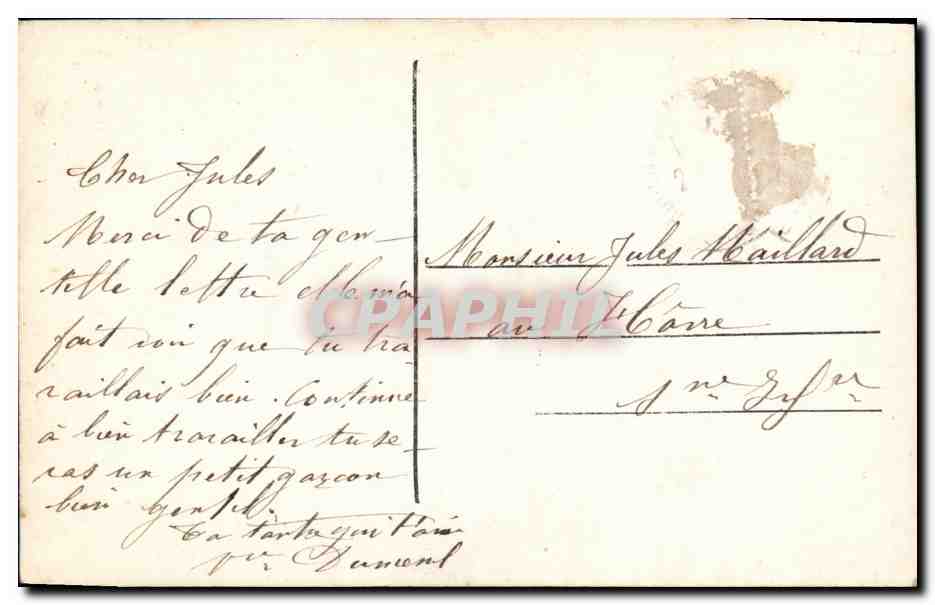 Cher Jules
Merci de ta gen-
tille lettre elle m'a
fait voir que tu tra-
vaillais bien. Continue
à bien travailler tu se-
ras un petit garçon
bien gentil.
Ta tante qui t'aime
Dumenl
Monsieur Jules Maillard
au Hâvre
Sne Infre
CPAPHIL